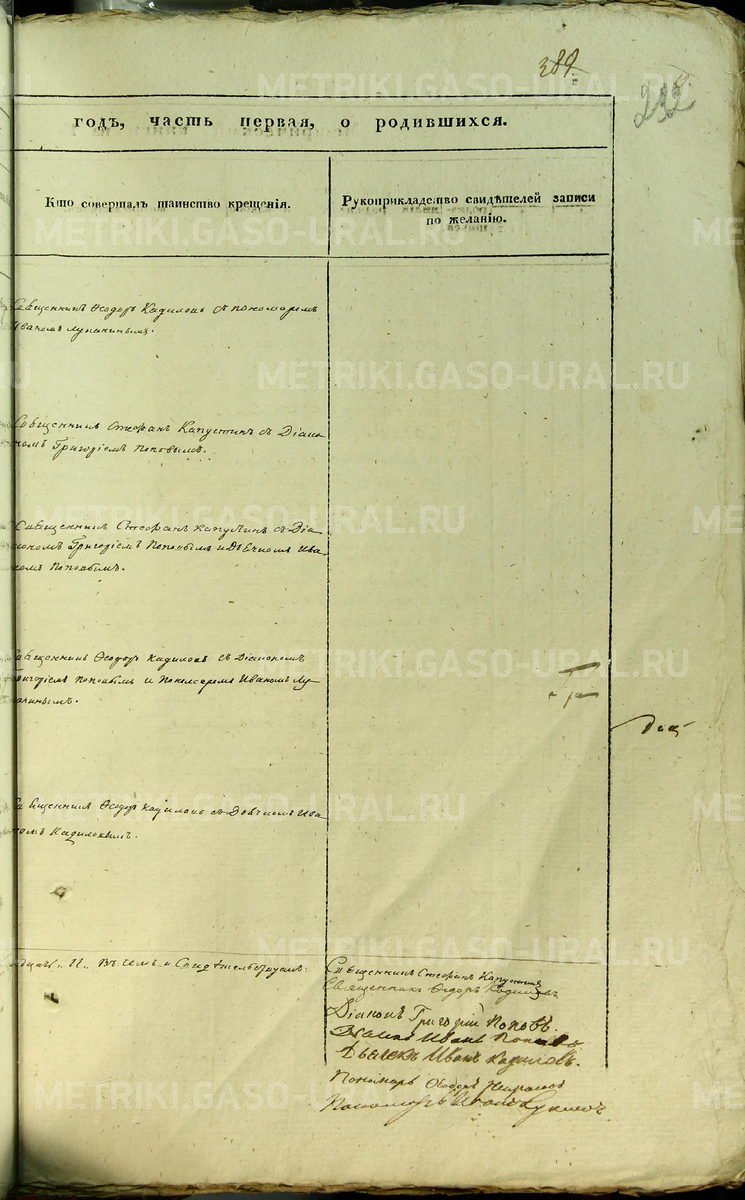 389.
232
годъ, часть первая, о родившихся.
Кто совершалъ таинство крещенія.
Рукоприкладство свидѣтелей записи
по желанію.
Священникъ Ѳеодоръ Кадиловъ съ пономаремъ
Иваномъ
Священникъ Стефанъ Капустинъ съ Діако
номъ Григоріемъ Поповымъ.
Священникъ Стефанъ Капустинъ съ Діа
кономъ Григоріемъ Поповымъ и Дьячкомъ Ива
номъ Поповымъ.
Священникъ Ѳеодоръ Кадиловъ съ Діакономъ
Григоріемъ Поповымъ и Пономаремъ Иваномъ
Священникъ Ѳеодоръ Кадиловъ съ Дьячкомъ Ива
номъ Кадиловымъ.
Въ чемъ и Свидѣтельствуемъ:
Священникъ Стефанъ Капустинъ
Священникъ Ѳедоръ Кадиловъ
Діаконъ Григорій Поповъ.
Иванъ Поповъ
Дьячекъ Иванъ Кадиловъ.
Пономарь Ѳеодоръ
Пономарь Иванъ
METRIKI.GASO-URAL.RU